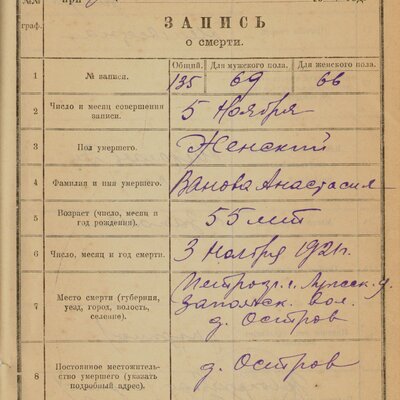 №№
граф.
при
год.
ЗАПИСЬ
о смерти.
Общий. Для мужского пола. Для женского пола.
1 № записи. 135 69 66
2 Число и месяц совершения записи. 5 Ноября
3 Пол умершего. Женский
4 Фамилия и имя умершего. Ванова Анастасия
5 Возраст (число, месяц и год рождения). 55 лет
6 Число, месяц и год смерти. 3 Ноября 1921 г.
7 Место смерти (губерния, уезд, город, волость, селение).
Петрогр. г. Лужск. у.
вол.
д. Остров
8 Постоянное местожительство умершего (указать подробный адрес). д. Остров